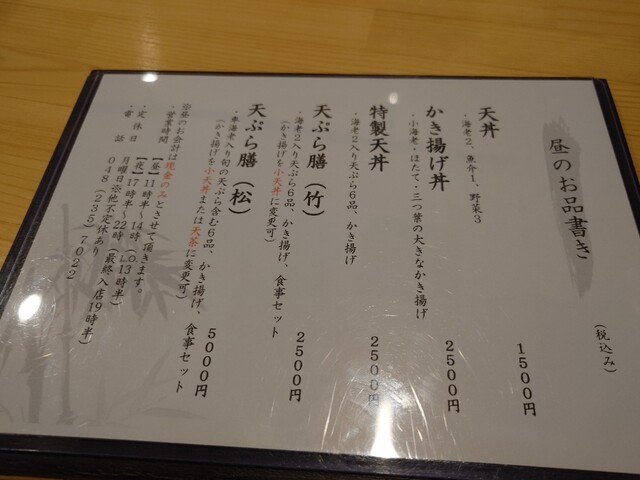 昼のお品書き
(税込み)
天丼
1500円
・海老2、魚介1、野菜3
かき揚げ丼
2500円
・小海老・ほたて・三つ葉の大きなかき揚げ
特製天丼
2500円
・海老2入り天ぷら6品、かき揚げ
天ぷら膳(竹)
2500円
・海老2入り天ぷら6品、かき揚げ、食事セット
(かき揚げを小天丼に変更可)
天ぷら膳(松)
5000円
・車海老入り旬の天ぷら含む6品、かき揚げ、食事セット
(かき揚げを小天丼または天茶に変更可)
※昼のお会計は現金のみとさせて頂きます。
・営業時間
【昼】11時半〜14時(L.O.13時半)
【夜】17時半〜22時(最終入店19時半)
・定休日 月曜日※他不定休あり
・電話 048(235)7022